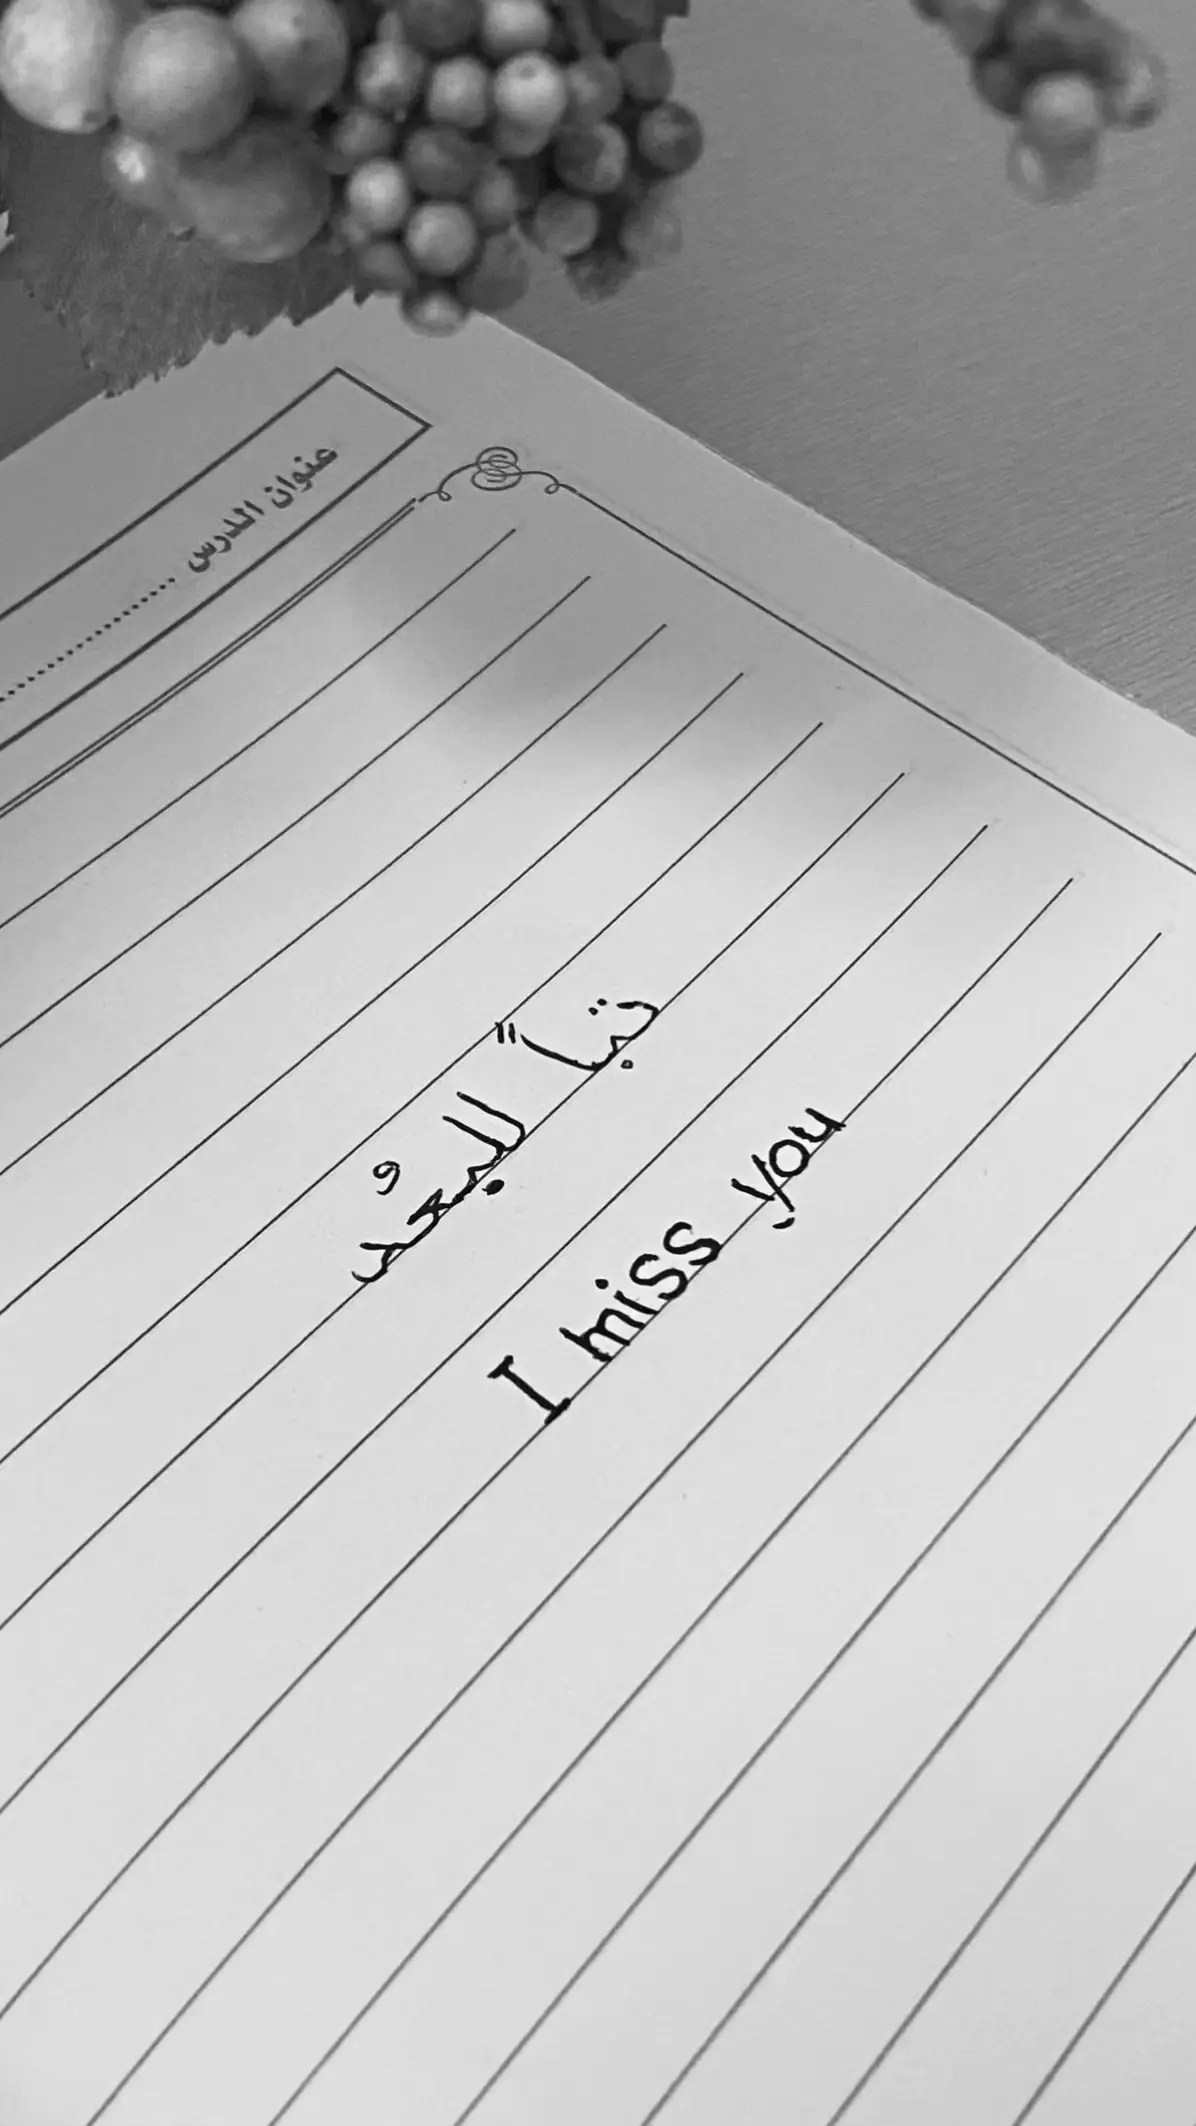 عنوان الدرس ....................
تباً للبُعد
I miss you